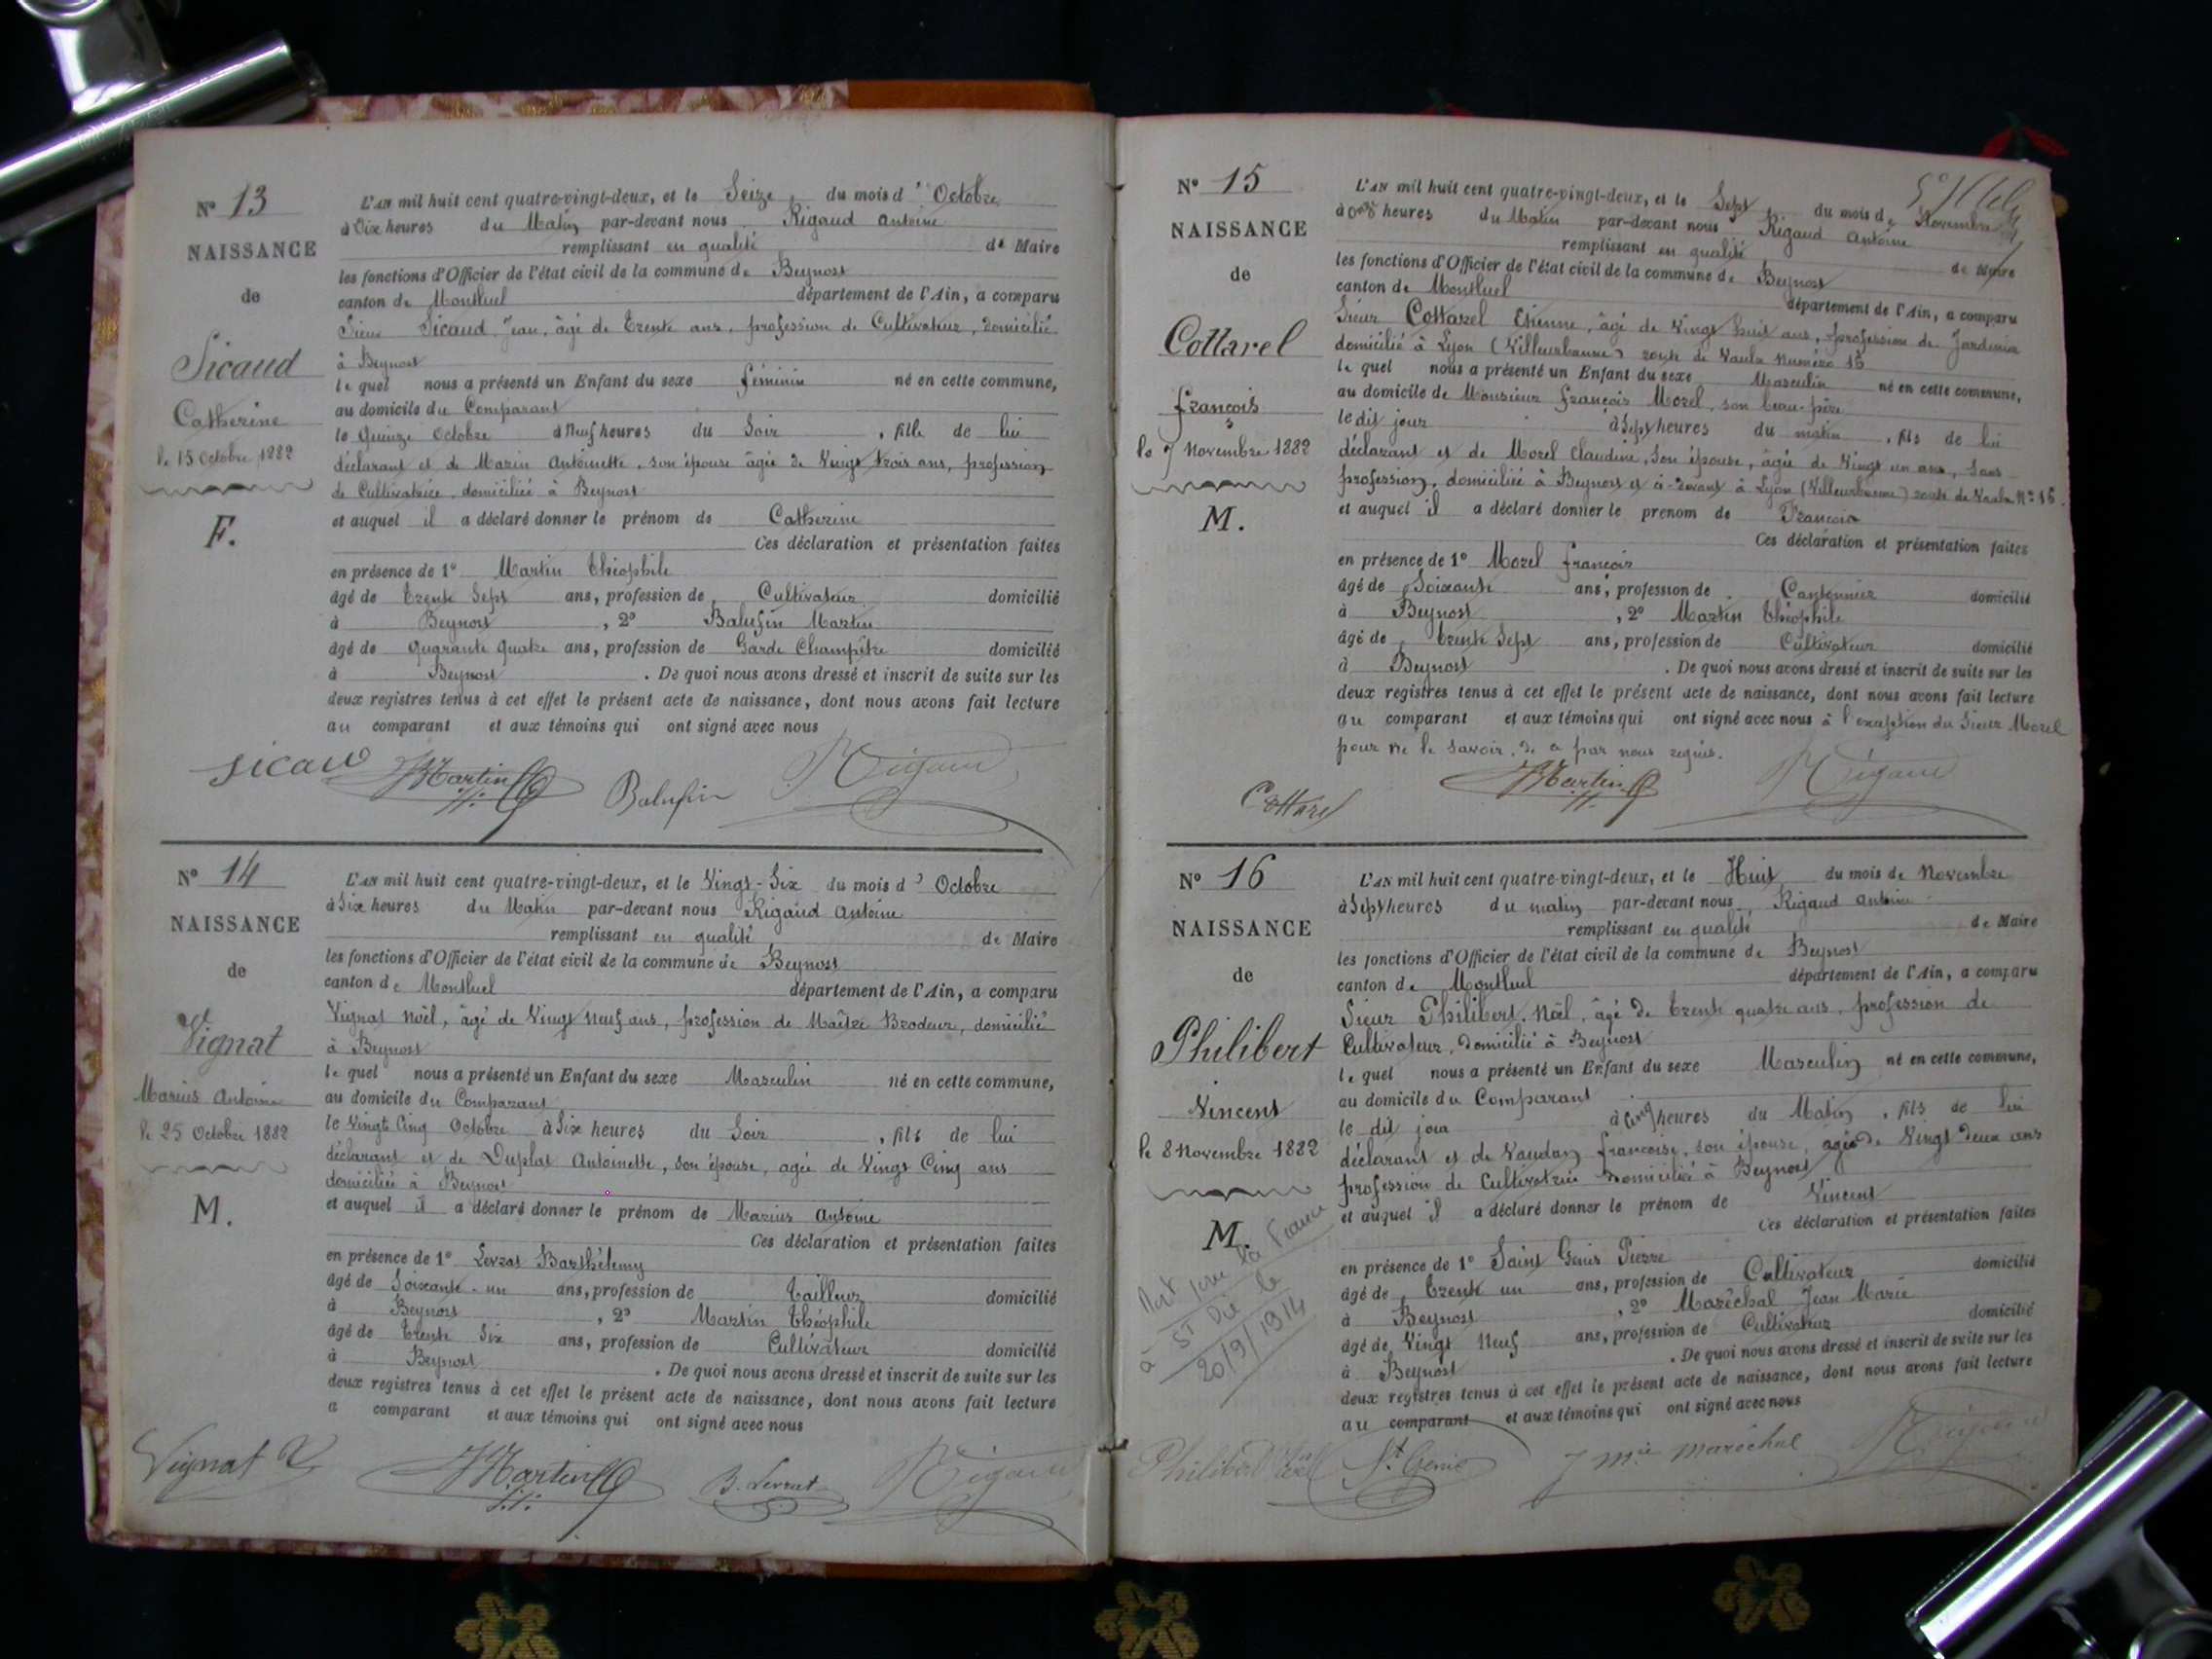 N° 13
NAISSANCE
de
Sicaud
Catherine
le 15 Octobre 1882
F.
L'an mil huit cent quatre-vingt-deux, et le Seize du mois d' Octobre
à Dix heures du Matin par-devant nous Rigaud Antoine
remplissant en qualité de Maire
les fonctions d'Officier de l'état civil de la commune de Beynost
canton de Montluel département de l'Ain, a comparu
Sieur Sicaud Jean, âgé de Trente ans, profession de Cultivateur, domicilié
à Beynost
le quel nous a présenté un Enfant du sexe féminin né en cette commune,
au domicile du Comparant
le Quinze Octobre à Neuf heures du Soir, fille de lui
déclarant et de Marin Antoinette, son épouse âgée de Vingt trois ans, profession
de Cultivatrice, domiciliée à Beynost
et auquel il a déclaré donner le prénom de Catherine
Ces déclaration et présentation faites
en présence de 1° Martin Théophile
âgé de Trente Sept ans, profession de Cultivateur domicilié
à Beynost, 2° Balufin Martin
âgé de Quarante quatre ans, profession de Garde Champêtre domicilié
à Beynost. De quoi nous avons dressé et inscrit de suite sur les
deux registres tenus à cet effet le présent acte de naissance, dont nous avons fait lecture
au comparant et aux témoins qui ont signé avec nous
Sicaud Martin Balufin Rigaud
N° 14
NAISSANCE
de
Vignat
Marius Antoine
le 25 Octobre 1882
M.
L'an mil huit cent quatre-vingt-deux, et le Vingt-Six du mois d' Octobre
à Six heures du Matin par-devant nous Rigaud Antoine
remplissant en qualité de Maire
les fonctions d'Officier de l'état civil de la commune de Beynost
canton de Montluel département de l'Ain, a comparu
Vignat Noël, âgé de Vingt Neuf ans, profession de Maître Brodeur, domicilié
à Beynost
le quel nous a présenté un Enfant du sexe Masculin né en cette commune,
au domicile du Comparant
le Vingt Cinq Octobre à Six heures du Soir, fils de lui
déclarant et de Duplat Antoinette, son épouse, agée de Vingt Cinq ans
domiciliée à Beynost
et auquel il a déclaré donner le prénom de Marius Antoine
Ces déclaration et présentation faites
en présence de 1° Levrat Barthélemy
âgé de Soixante-un ans, profession de Tailleur domicilié
à Beynost, 2° Martin Théophile
âgé de Trente Six ans, profession de Cultivateur domicilié
à Beynost. De quoi nous avons dressé et inscrit de suite sur les
deux registres tenus à cet effet le présent acte de naissance, dont nous avons fait lecture
a comparant et aux témoins qui ont signé avec nous
Vignat Martin B. Levrat Rigaud
N° 15
NAISSANCE
de
Cottarel
François
le 7 Novembre 1882
M.
L'an mil huit cent quatre-vingt-deux, et le Sept du mois de Novembre
à onze heures du Matin par-devant nous Rigaud Antoine
remplissant en qualité de Maire
les fonctions d'Officier de l'état civil de la commune de Beynost
canton de Montluel département de l'Ain, a comparu
Sieur Cottarel Etienne, âgé de Vingt huit ans, profession de Jardinier
domicilié à Lyon (Villeurbanne) route de Vaulx Numéro 15
le quel nous a présenté un Enfant du sexe Masculin né en cette commune,
au domicile de Monsieur François Morel, son beau-père
le dit jour à Sept heures du matin, fils de lui
déclarant et de Morel Claudine, son épouse, âgée de Vingt un ans, sans
profession, domiciliée à Beynost et ci-devant à Lyon (Villeurbanne) route de Vaulx N° 15
et auquel il a déclaré donner le prenom de François
Ces déclaration et présentation faites
en présence de 1° Morel François
âgé de Soixante ans, profession de Cantonnier domicilié
à Beynost, 2° Martin Théophile
âgé de Trente Sept ans, profession de Cultivateur domicilié
à Beynost. De quoi nous avons dressé et inscrit de suite sur les
deux registres tenus à cet effet le présent acte de naissance, dont nous avons fait lecture
au comparant et aux témoins qui ont signé avec nous à l'exception du Sieur Morel
pour ne le savoir, de ce par nous requis.
Cottarel Martin Rigaud
N° 16
NAISSANCE
de
Philibert
Vincent
le 8 Novembre 1882
M.
Mort pour la France
à St Dié le
20/9/1914
L'an mil huit cent quatre-vingt-deux, et le Huit du mois de Novembre
à Sept heures du matin par-devant nous Rigaud Antoine
remplissant en qualité de Maire
les fonctions d'Officier de l'état civil de la commune de Beynost
canton de Montluel département de l'Ain, a comparu
Sieur Philibert Noël, âgé de Trente quatre ans, profession de
Cultivateur, domicilié à Beynost
le quel nous a présenté un Enfant du sexe Masculin né en cette commune,
au domicile du Comparant
le dit jour à Cinq heures du Matin, fils de lui
déclarant et de Vaudan françoise, son épouse, agée de Vingt deux ans
profession de Cultivatrice domiciliée à Beynost
et auquel il a déclaré donner le prénom de Vincent
Ces déclaration et présentation faites
en présence de 1° Saint Genis Pierre
âgé de Trente un ans, profession de Cultivateur domicilié
à Beynost, 2° Maréchal Jean Marie
âgé de Vingt Neuf ans, profession de Cultivateur domicilié
à Beynost. De quoi nous avons dressé et inscrit de suite sur les
deux registres tenus à cet effet le présent acte de naissance, dont nous avons fait lecture
au comparant et aux témoins qui ont signé avec nous
Philibert Noël St Genis J Mie Maréchal Rigaud